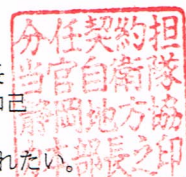 分任契約担
当官自衛隊
静岡地方協
力本部長之印
己
れたい。